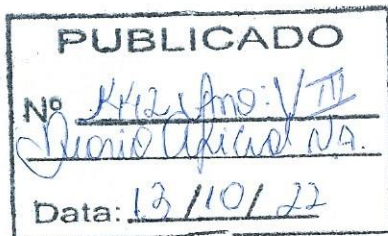 PUBLICADO
Nº 1442, Ano: VIII
Diario Oficial Na.
Data: 13/10/22